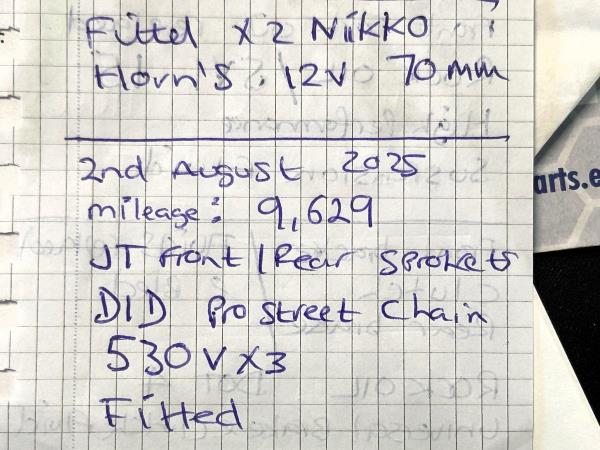 Fitted x2 Nikko
Horn's. 12v 70mm
2nd August 2025
mileage: 9,629
JT Front/Rear Sprokets
DID Pro Street Chain
530VX3
Fitted
arts.e